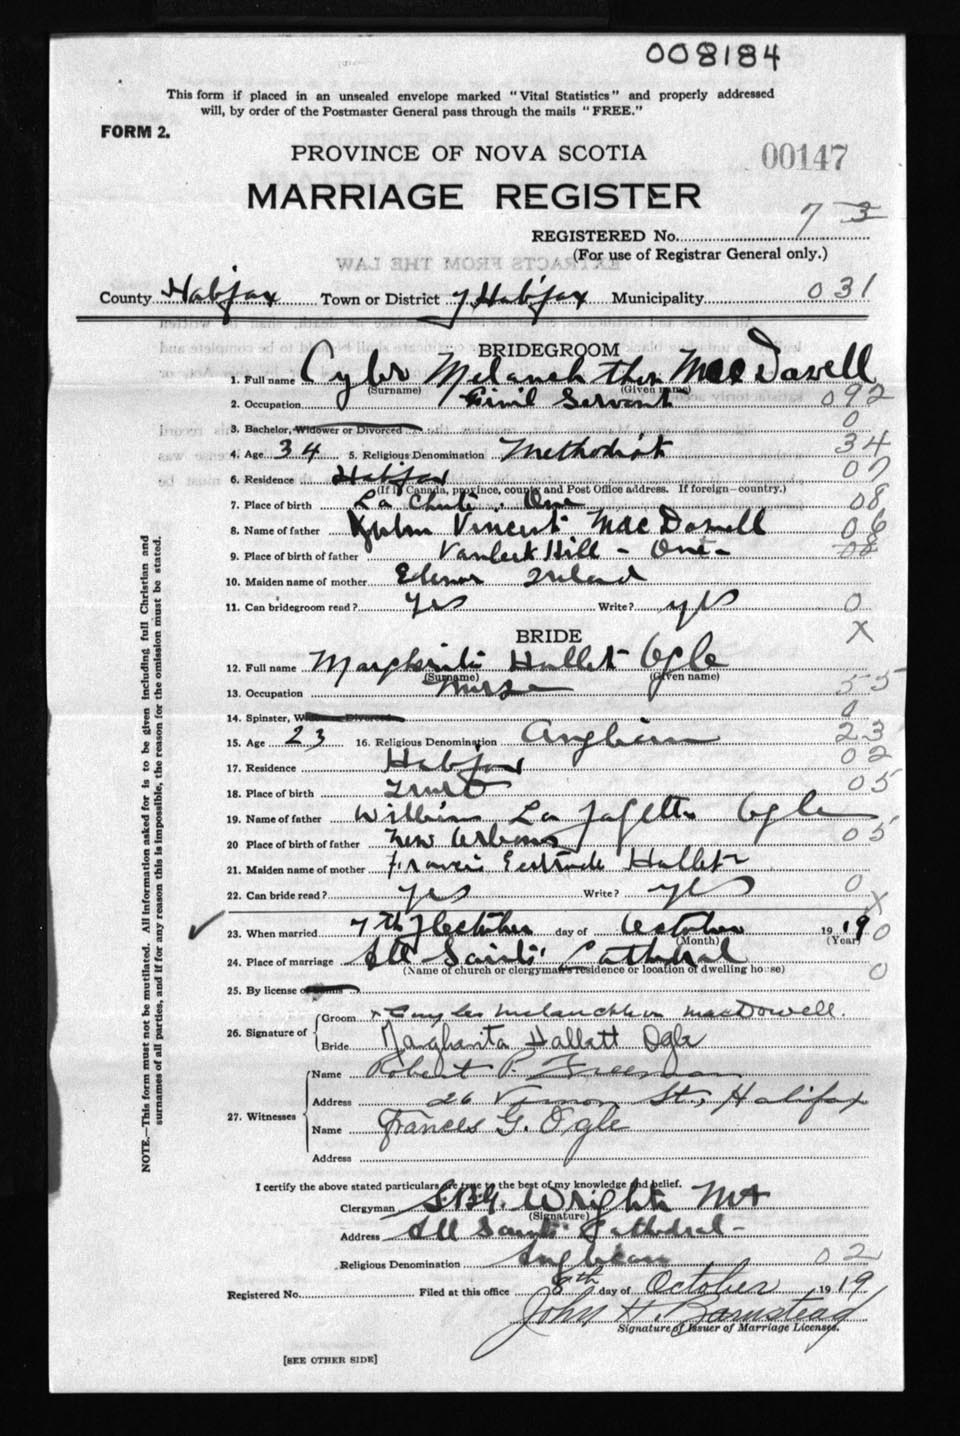 008184
This form if placed in an unsealed envelope marked "Vital Statistics" and properly addressed
will, by order of the Postmaster General pass through the mails "FREE."
FORM 2.
PROVINCE OF NOVA SCOTIA
00147
MARRIAGE REGISTER
REGISTERED No. 73
(For use of Registrar General only.)
EXTRACTS FROM THE LAW
County Halifax Town or District Halifax Municipality 031
BRIDEGROOM
1. Full name Melanchthon MacDowell
(Surname) (Given name)
2. Occupation Civil Servant 092
3. Bachelor, Widower or Divorced 0
4. Age 34 5. Religious Denomination Methodist 34
6. Residence Halifax 07
(If in Canada, province, county and Post Office address. If foreign—country.)
7. Place of birth La Chute. 08
8. Name of father John Vincent MacDowell 06
9. Place of birth of father Vankleek Hill - Ont- 08
10. Maiden name of mother
11. Can bridegroom read? Yes Write? yes 0
BRIDE X
12. Full name Margharita Hallett Ogle
(Surname) (Given name)
13. Occupation Nurse 55
14. Spinster, Widow or Divorced 0
15. Age 23 16. Religious Denomination Anglican 23
17. Residence Halifax 02
18. Place of birth Truro 05
19. Name of father William La Ogle
20 Place of birth of father New Orleans 05
21. Maiden name of mother Francis Gertrude Hallett
22. Can bride read? yes Write? yes 0
X
23. When married 7th day of October 1919 0
(Month) (Year)
24. Place of marriage All Saints' Cathedral
(Name of church or clergyman's residence or location of dwelling house) 0
25. By license or
26. Signature of Groom x Melanchthon MacDowell.
Bride Margharita Hallett Ogle
27. Witnesses Name Robert P. Freeman
Address 26 Vernon St., Halifax
Name Frances G. Ogle
Address
I certify the above stated particulars are true to the best of my knowledge and belief.
Clergyman Wright MA
(Signature)
Address All Saints' Cathedral-
Religious Denomination Anglican 02
Registered No. Filed at this office 8th day of October 1919
John H. Barnstead
Signature of Issuer of Marriage Licenses.
[SEE OTHER SIDE]
NOTE.—This form must not be mutilated. All information asked for is to be given including full Christian and
surnames of all parties, and if for any reason this is impossible, the reason for the omission must be stated.